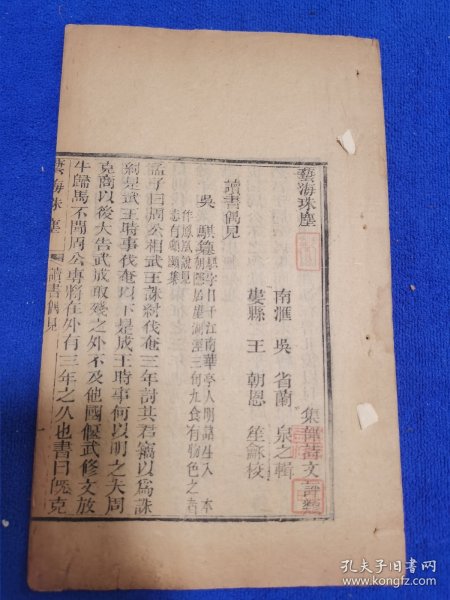 藝海珠塵
集部詩文評類
南滙 吳 省蘭 泉之輯
婁縣 王 朝恩 笙龢校
讀書偶見
吳騏
孟子曰周公相武王誅紂伐奄三年討其君竊以爲誅
紂是武王時事伐奄以下是成王時事何以明之大周
克商以後大告武成取殘之外不及他國偃武修文放
牛歸馬不聞周公專將在外有三年之久也書曰旣克
藝海珠塵 讀書偶見
孔夫子旧书网
www.kongfz.com